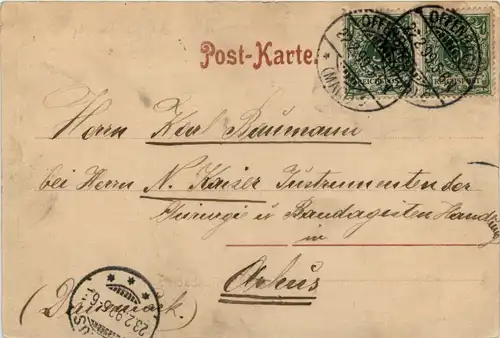 Post-Karte.
OFFENBACH
(MAIN)
REICHSPOST
Herrn Karl Baumann
bei Herrn N. Kaiser Instrumenten der
Chirurgie u Bandagisten Handlung
in
Arhus
(Danmark)
23.2.9